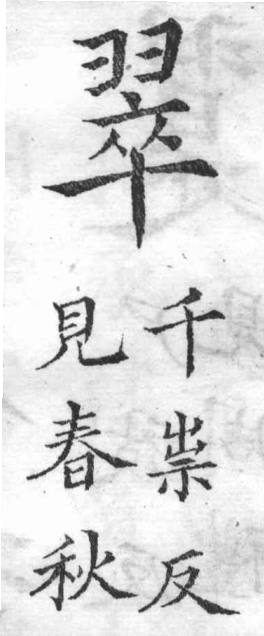 翠
千祟反
見春秋